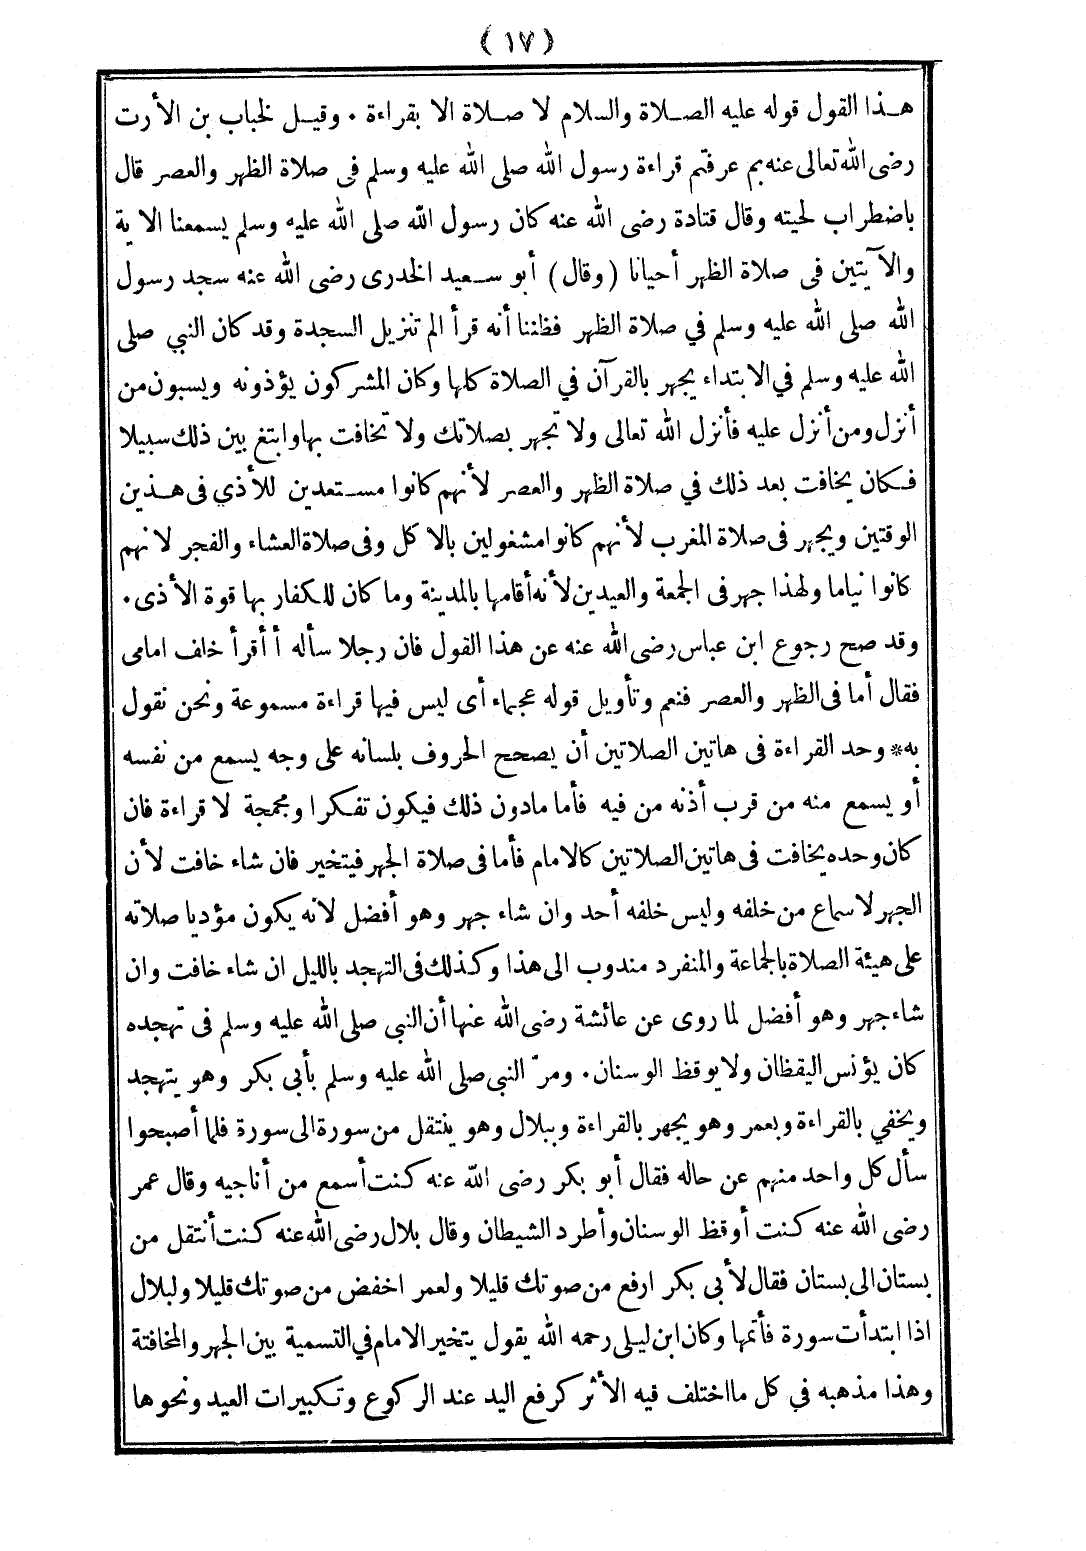 (١٧)
هذا القول قوله عليه الصلاة والسلام لا صلاة الا بقراءة . وقيل لخباب بن الأرت
رضى الله تعالى عنه بم عرفتم قراءة رسول الله صلى الله عليه وسلم فى صلاة الظهر والعصر قال
باضطراب لحيته وقال قتادة رضى الله عنه كان رسول الله صلى الله عليه وسلم يسمعنا الاية
والآيتين فى صلاة الظهر أحيانا (وقال) أبو سعيد الخدرى رضى الله عنه سجد رسول
الله صلى الله عليه وسلم في صلاة الظهر فظننا أنه قرأ الم تنزيل السجدة وقد كان النبي صلى
الله عليه وسلم في الابتداء يجهر بالقرآن في الصلاة كلها وكان المشركون يؤذونه ويسبون من
أنزل ومن أنزل عليه فأنزل الله تعالى ولا تجهر بصلاتك ولا تخافت بها وابتغ بين ذلك سبيلا
فكان يخافت بعد ذلك في صلاة الظهر والعصر لأنهم كانوا مستعدين للأذي فى هذين
الوقتين ويجهر فى صلاة المغرب لأنهم كانوا مشغولين بالاكل وفى صلاة العشاء والفجر لانهم
كانوا نياما ولهذا جهر فى الجمعة والعيدين لأنه أقامها بالمدينة وما كان للكفار بها قوة الأذى .
وقد صح رجوع ابن عباس رضى الله عنه عن هذا القول فان رجلا سأله أأقرأ خلف امامى
فقال أما فى الظهر والعصر فنعم وتأويل قوله عجماء أى ليس فيها قراءة مسموعة ونحن نقول
به * وحد القراءة فى هاتين الصلاتين أن يصحح الحروف بلسانه على وجه يسمع من نفسه
أو يسمع منه من قرب أذنه من فيه فأما مادون ذلك فيكون تفكرا ومجمجة لا قراءة فان
كان وحده يخافت فى هاتين الصلاتين كالامام فأما فى صلاة الجهر فيتخير فان شاء خافت لأن
الجهر لاسماع من خلفه وليس خلفه أحد وان شاء جهر وهو أفضل لانه يكون مؤديا صلاته
على هيئة الصلاة بالجماعة والمنفرد مندوب الى هذا وكذلك فى التهجد بالليل ان شاء خافت وان
شاء جهر وهو أفضل لما روى عن عائشة رضى الله عنها أن النبى صلى الله عليه وسلم فى تهجده
كان يؤنس اليقظان ولا يوقظ الوسنان . ومرّ النبى صلى الله عليه وسلم بأبي بكر وهو يتهجد
ويخفي بالقراءة وبعمر وهو يجهر بالقراءة وببلال وهو ينتقل من سورة الى سورة فلما أصبحوا
سأل كل واحد منهم عن حاله فقال أبو بكر رضى الله عنه كنت أسمع من أناجيه وقال عمر
رضى الله عنه كنت أوقظ الوسنان وأطرد الشيطان وقال بلال رضى الله عنه كنت أنتقل من
بستان الى بستان فقال لأبى بكر ارفع من صوتك قليلا ولعمر اخفض من صوتك قليلا ولبلال
اذا ابتدأت سورة فأتمها وكان ابن ليلى رحمه الله يقول يتخير الامام في التسمية بين الجهر والمخافتة
وهذا مذهبه في كل ما اختلف فيه الأثر كرفع اليد عند الركوع وتكبيرات العيد ونحوها